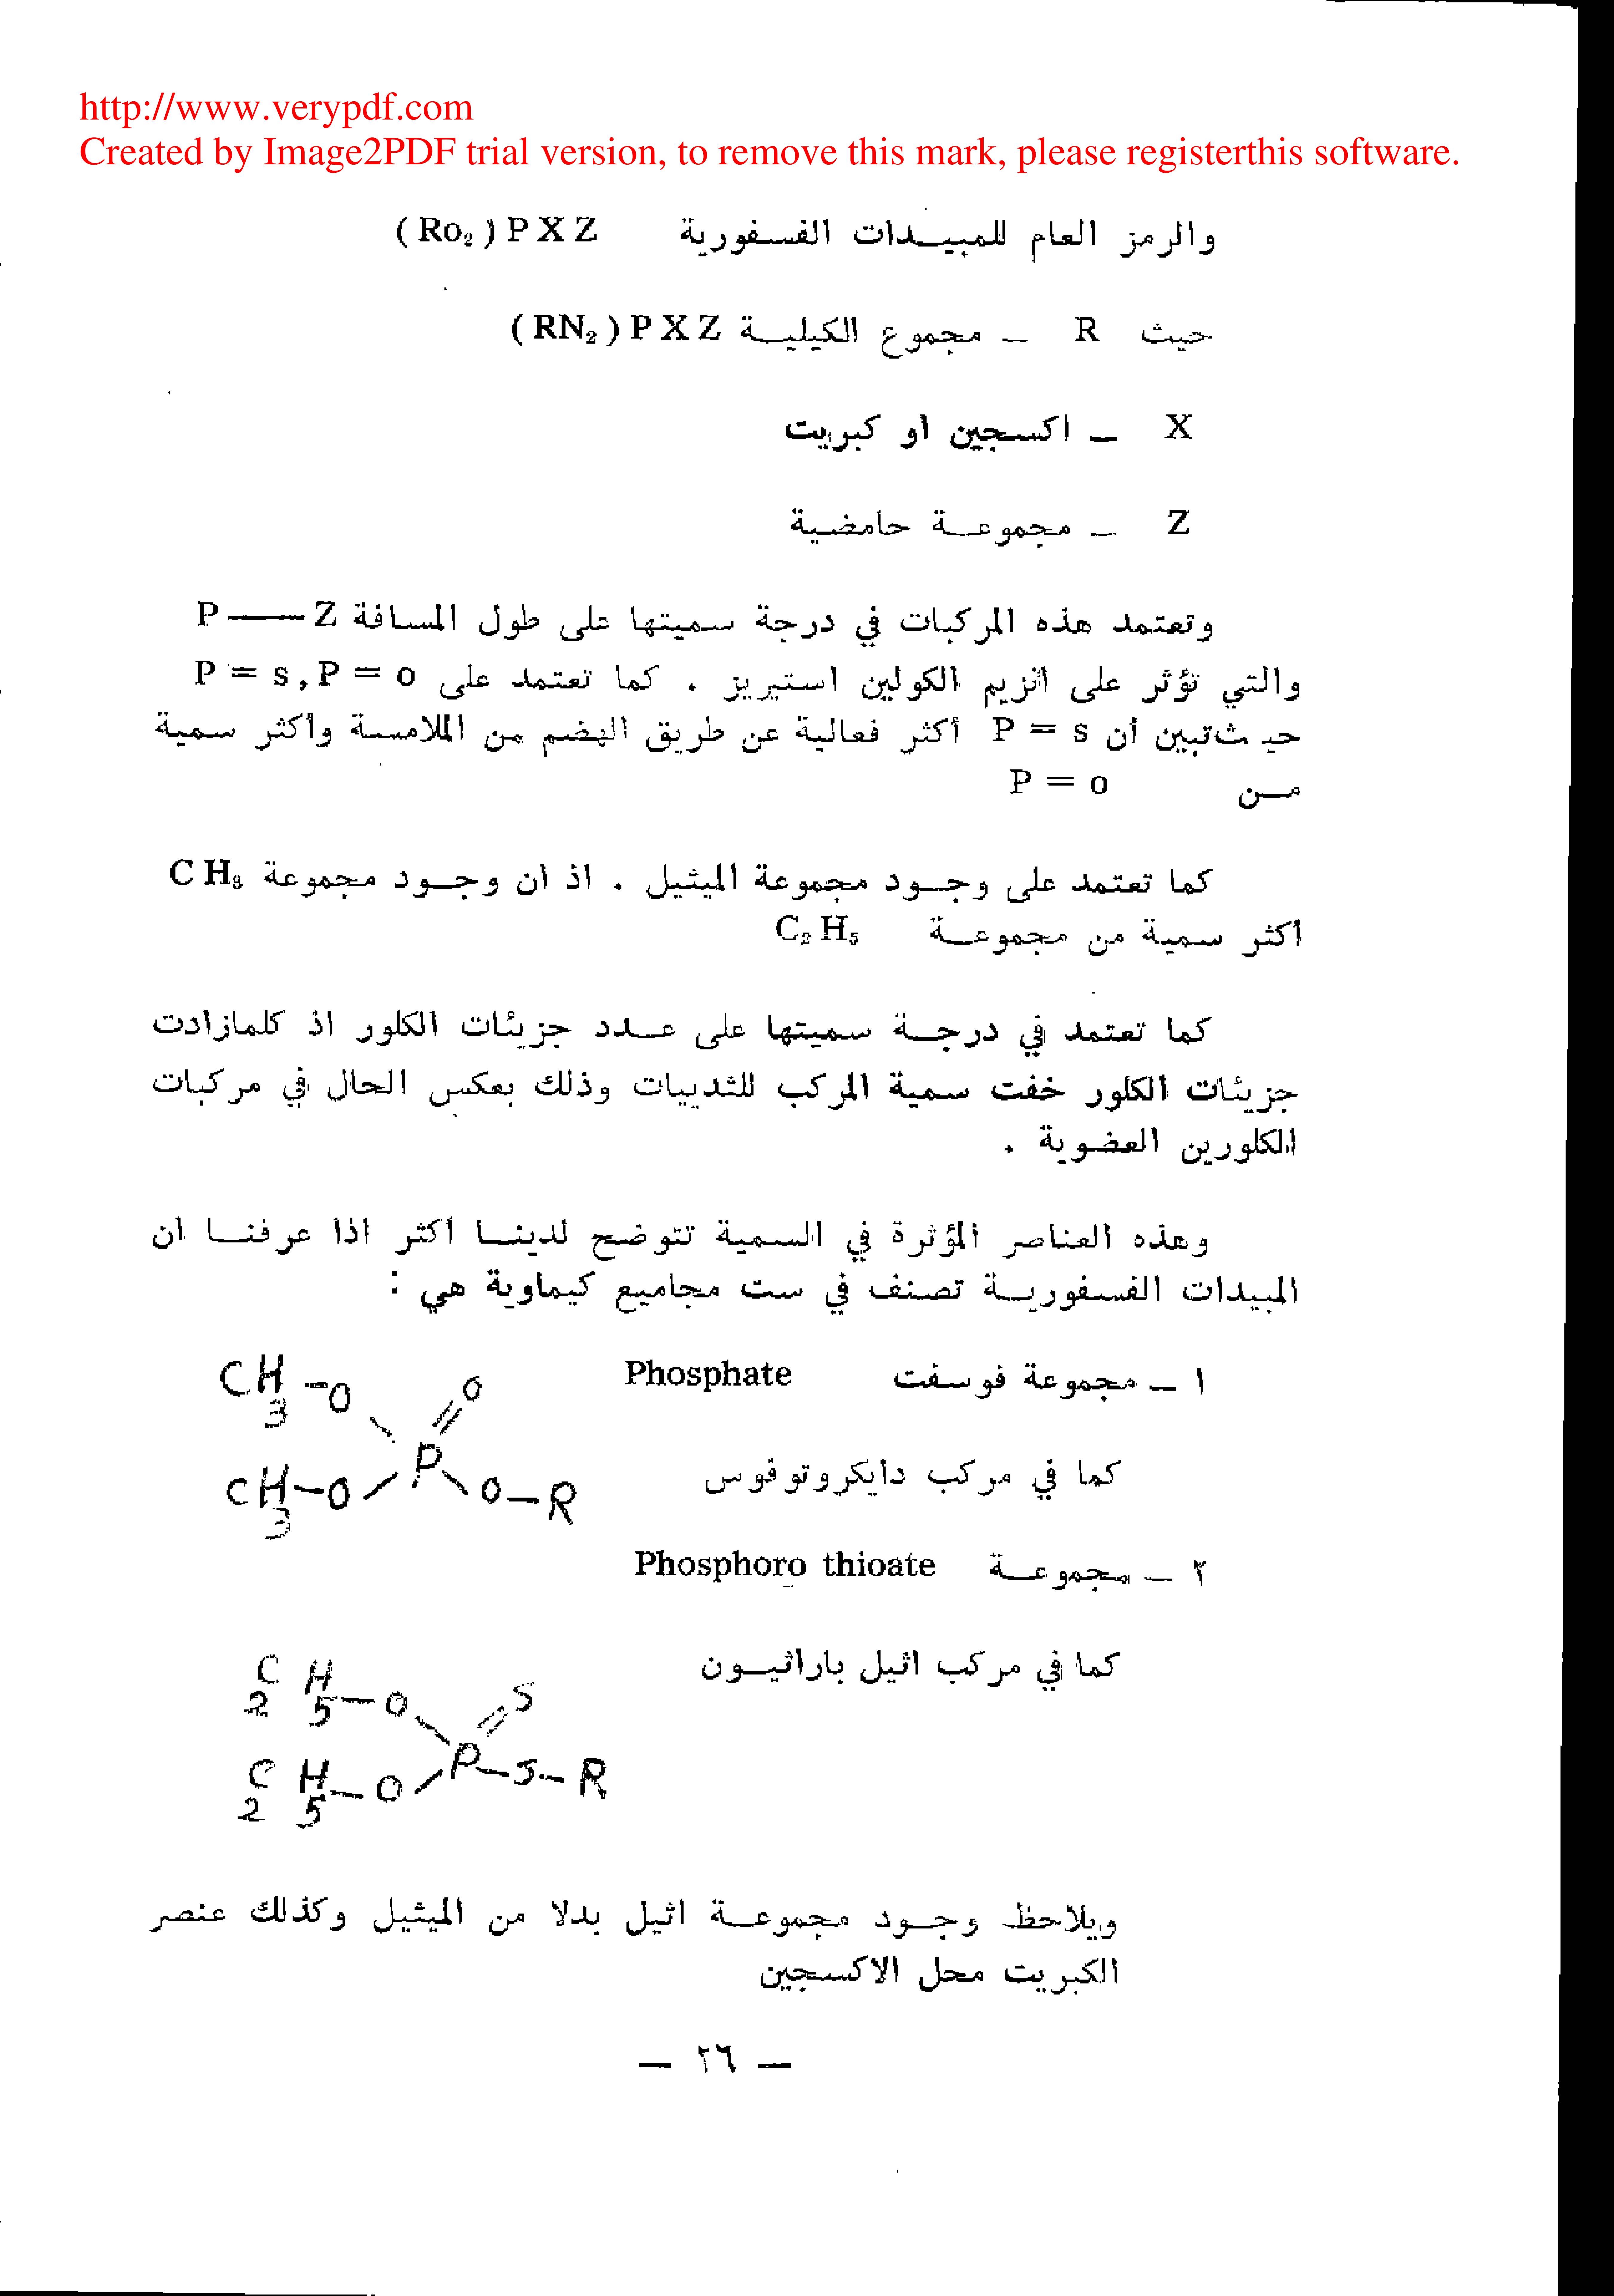 http://www.verypdf.com
Created by Image2PDF trial version, to remove this mark, please registerthis software.
والرمز العام للمبيدات الفسفورية (Ro₂) P X Z
حيث R – مجموع الكيلية (RN₂) P X Z
X – اكسجين او كبريت
Z – مجموعة حامضية
وتعتمد هذه المركبات في درجة سميتها على طول المسافة P —— Z
والتي تؤثر على انزيم الكولين استيريز . كما تعتمد على P = s , P = o
حيـ ثتبين أن P = s أكثر فعالية عن طريق الهضم من الملامسة وأكثر سمية
من P = o
كما تعتمد على وجود مجموعة الميثيل . اذ ان وجود مجموعة C H₃
اكثر سمية من مجموعة C₂ H₅
كما تعتمد في درجة سميتها على عدد جزيئات الكلور اذ كلمازادت
جزيئات الكلور خفت سمية المركب للثدييات وذلك بعكس الحال في مركبات
الكلورين العضوية .
وهذه العناصر المؤثرة في السمية تتوضح لدينا أكثر اذا عرفنا ان
المبيدات الفسفورية تصنف في ست مجاميع كيماوية هي :
١ – مجموعة فوسفت Phosphate
CH₃-O
O
P
كما في مركب دايكروتوفوس
CH₃-O
O-R
٢ – مجموعة Phosphoro thioate
كما في مركب اثيل باراثيون
C₂ H₅-O
S
P-S-R
C₂ H₅-O
ويلاحظ وجود مجموعة اثيل بدلا من الميثيل وكذلك عنصر
الكبريت محل الاكسجين
— ٢٦ —